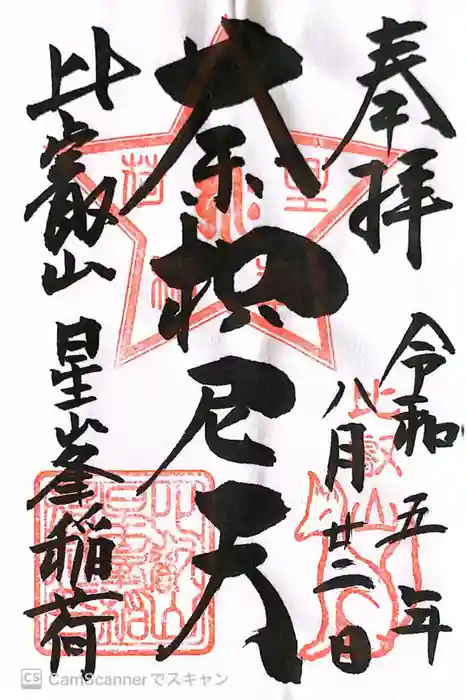 奉拝
令和五年
八月廿二日
荼枳尼天
比叡山
星峯稲荷
比叡
CamScannerでスキャン